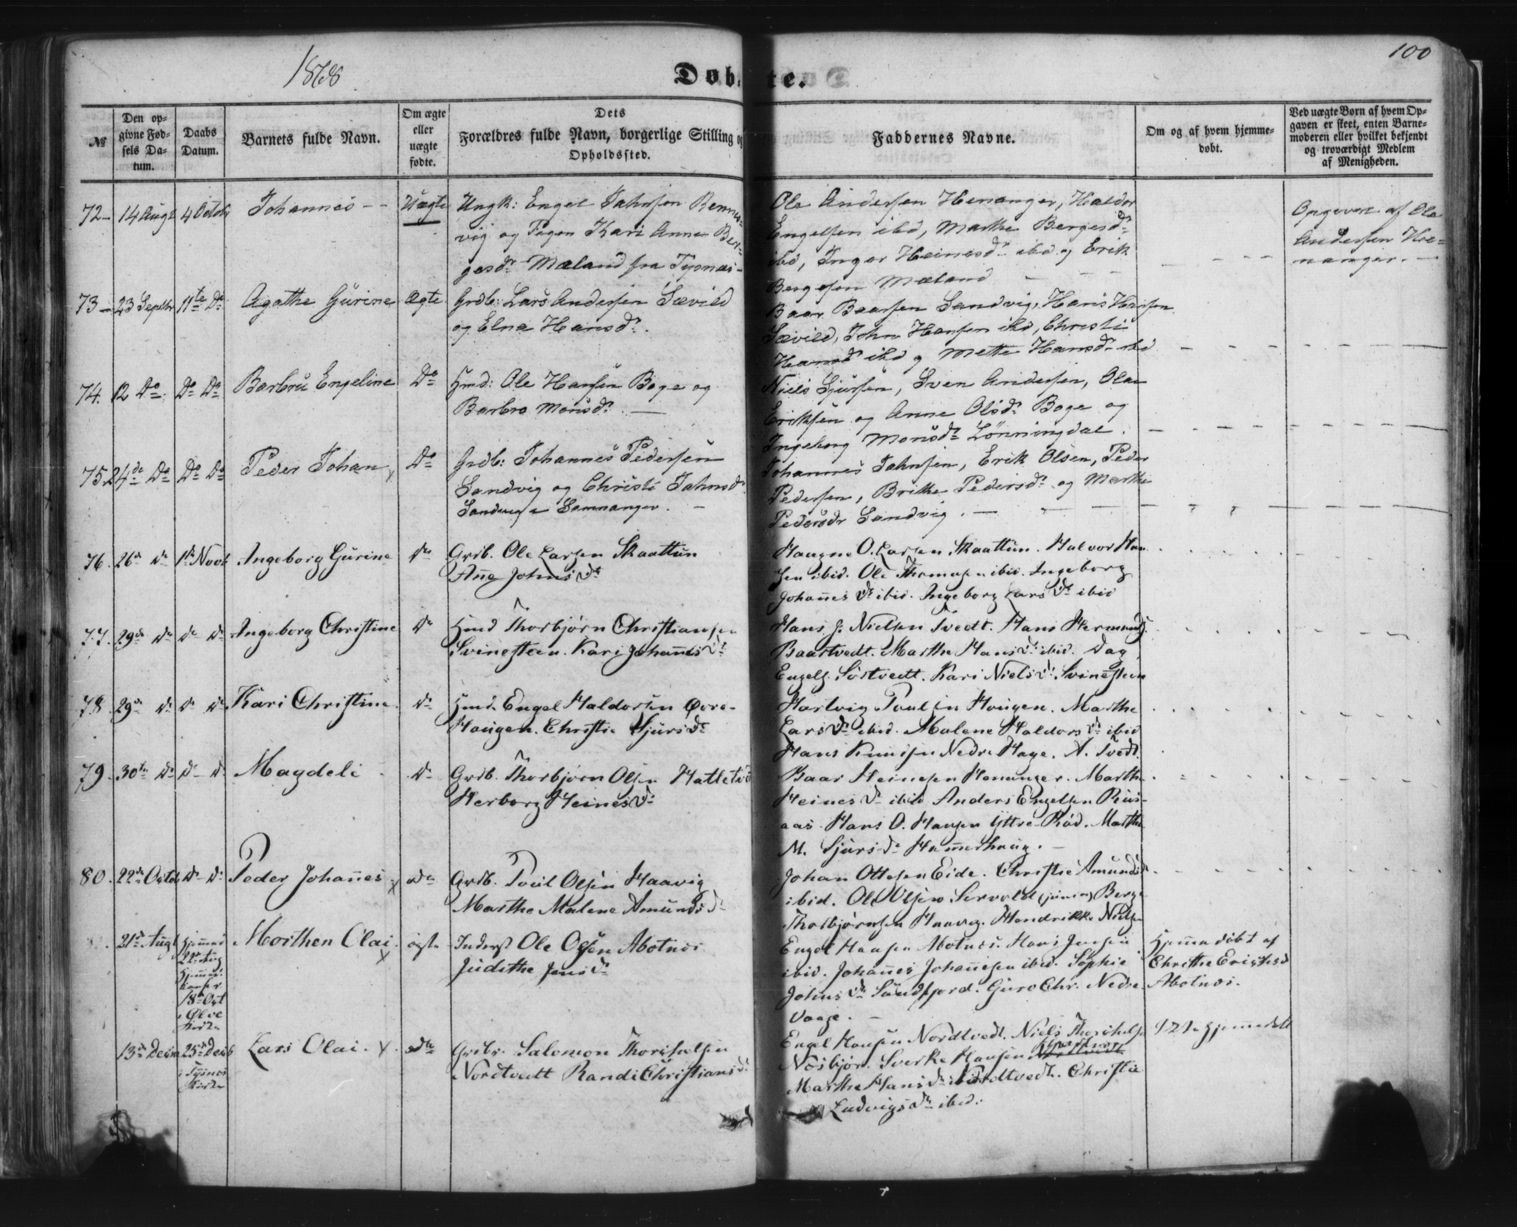 1868
Døbte.
100
№
Den opgivne Fødsels Datum.
Daabs Datum.
Barnets fulde Navn.
Om ægte eller uægte fødte.
Dets Forældres fulde Navn, borgerlige Stilling og Opholdssted.
Faddernes Navne.
Om og af hvem hjemmedøbt.
Ved uægte Børn af hvem Opgaven er skeet, enten Barnemoderen eller hvilket bekjendt og troværdigt Medlem af Menigheden.
72 14 Augt 4 Octob Johannes Uægte Ungk: Engel Jahnsen
vig og Pigen Kari Anna
gesdr Mæland fra Tysnæs
Ole Andersen Henanger, Haldor
Engelsen ibd, Marthe Bergesdr
ibd, Inger Heinesdr ibd og Erik
Bergesen Mæland
Opgivet af Ole
Andersen Henanger.
73 23 Septbr 11te Do Agathe Gurine Ægte Grdb: Lars Andersen Sævild
og Elna Hansdr.
Baar Baarsen Sandvig, Hans Hansen
Sævild, John Hansen ibd, Christi
Hansdr ibd og Mette Hansdr ibd
74. 12 Do. Do Do Barbru Engeline Do Hmd: Ole Hansen Boge og
Barbro Monsdr.
Niels Sjursen, Sven Andersen, Ola
Eriksen og Anne Olsdr Boge og
Ingeborg Monsdr Lønningdal.
75. 24de Do Do Do Peder Johan Do Grdb: Johannes Pedersen
Sandvig og Christi Jahnsdr
Sandvig i Samnanger.
Johannes Jahnsen, Erik Olsen, Peder
Pedersen, Brithe Pedersdr og Marthe
Pedersdr Sandvig.
76. 26de do 1ste Novb Ingeborg Gurine do Grdb. Ole Larsen Skaattun
Ane Johnsdr
Haugne O. Larsen Skaattun. Halvor Hansen
ibid. Ole Thomasen ibid. Ingeborg
Johanesdr ibid. Ingeborg Larsdr ibid
77. 29de do do do Ingeborg Christine do Hmd Thorbjørn Christiansen
Svinesteen. Kari Johanesdr
Hans J. Nielsen Tvedt. Hans
Baartvedt. Marthe Hansdr ibid. Dag
Engels. Søstvedt. Kari Nielsdr Svinesteen
78. 29de do do do Kari Christine do Hmd. Engel Haldorsen Øvre-
Haugen. Christie Sjursdr
Hartvig Poulsen Haugen. Marthe
Larsdr ibid. Malene Haldorsdr ibid
Hans Knudsen Nedre Hage. A. Tvedt.
79. 30te do do do Magdeli do Grdb. Thorbjørn Olsen
Herborg Heinesdr
Baar Heinesen Henanger. Marthe
Heinesdr ibid Anders Engelsen
aas. Hans O. Hansen Yttre Rød. Marthe
M. Sjursdr
80. 22de Octob do do Peder Johanes do Grdb. Poul Olsen Haavig
Marthe Malene Amundsdr
Johan Ottesen Eide. Christie Amundsdr
ibid. Ole Olsen (junior) Berge
Thorbjørnsen Haavig. Hendrikke Niels
21de Augt Hjemmed
18de Oct
i Ølve
Kirke
Morthen Olai ægte Inderst Ole Olsen Abotnæs
Judithe Jensdr
Engel Hansen Abotnæs. Hans Jensen
ibid. Johanes Johanesen ibid. Sophie
Johnsdr Sandfjord. Guro Chr. Nedre
Vaage.
Hjemmedøbt af
Christie Eriksd
Abotnæs.
13de Decbr 25de Decb
i Tysnes
Kirke
Lars Olai do Grdb. Salomon
Nordtvedt Randi Christiansdr
Engel Hansen Nordtvedt. Niels
Næsbjør. Sverke Hansen
Marthe Hansdr Nordtvedt. Christie
Ludvigsdr ibid.